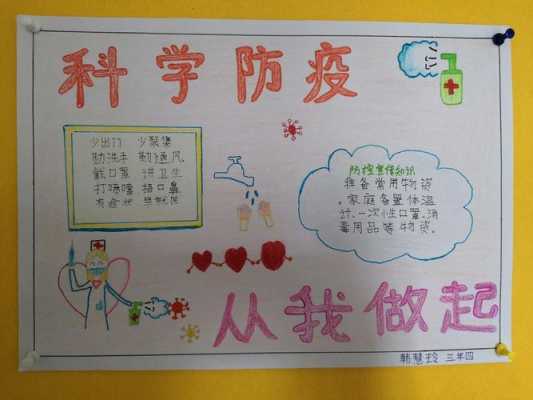 科学防疫
少出门 少聚集
勤洗手 勤通风
戴口罩 讲卫生
打喷嚏 捂口鼻
有症状 早就医
防控宣传知识
准备常用物资
，家庭备置体温
计、一次性口罩、消
毒用品等物资。
从我做起
韩慧玲 三年四